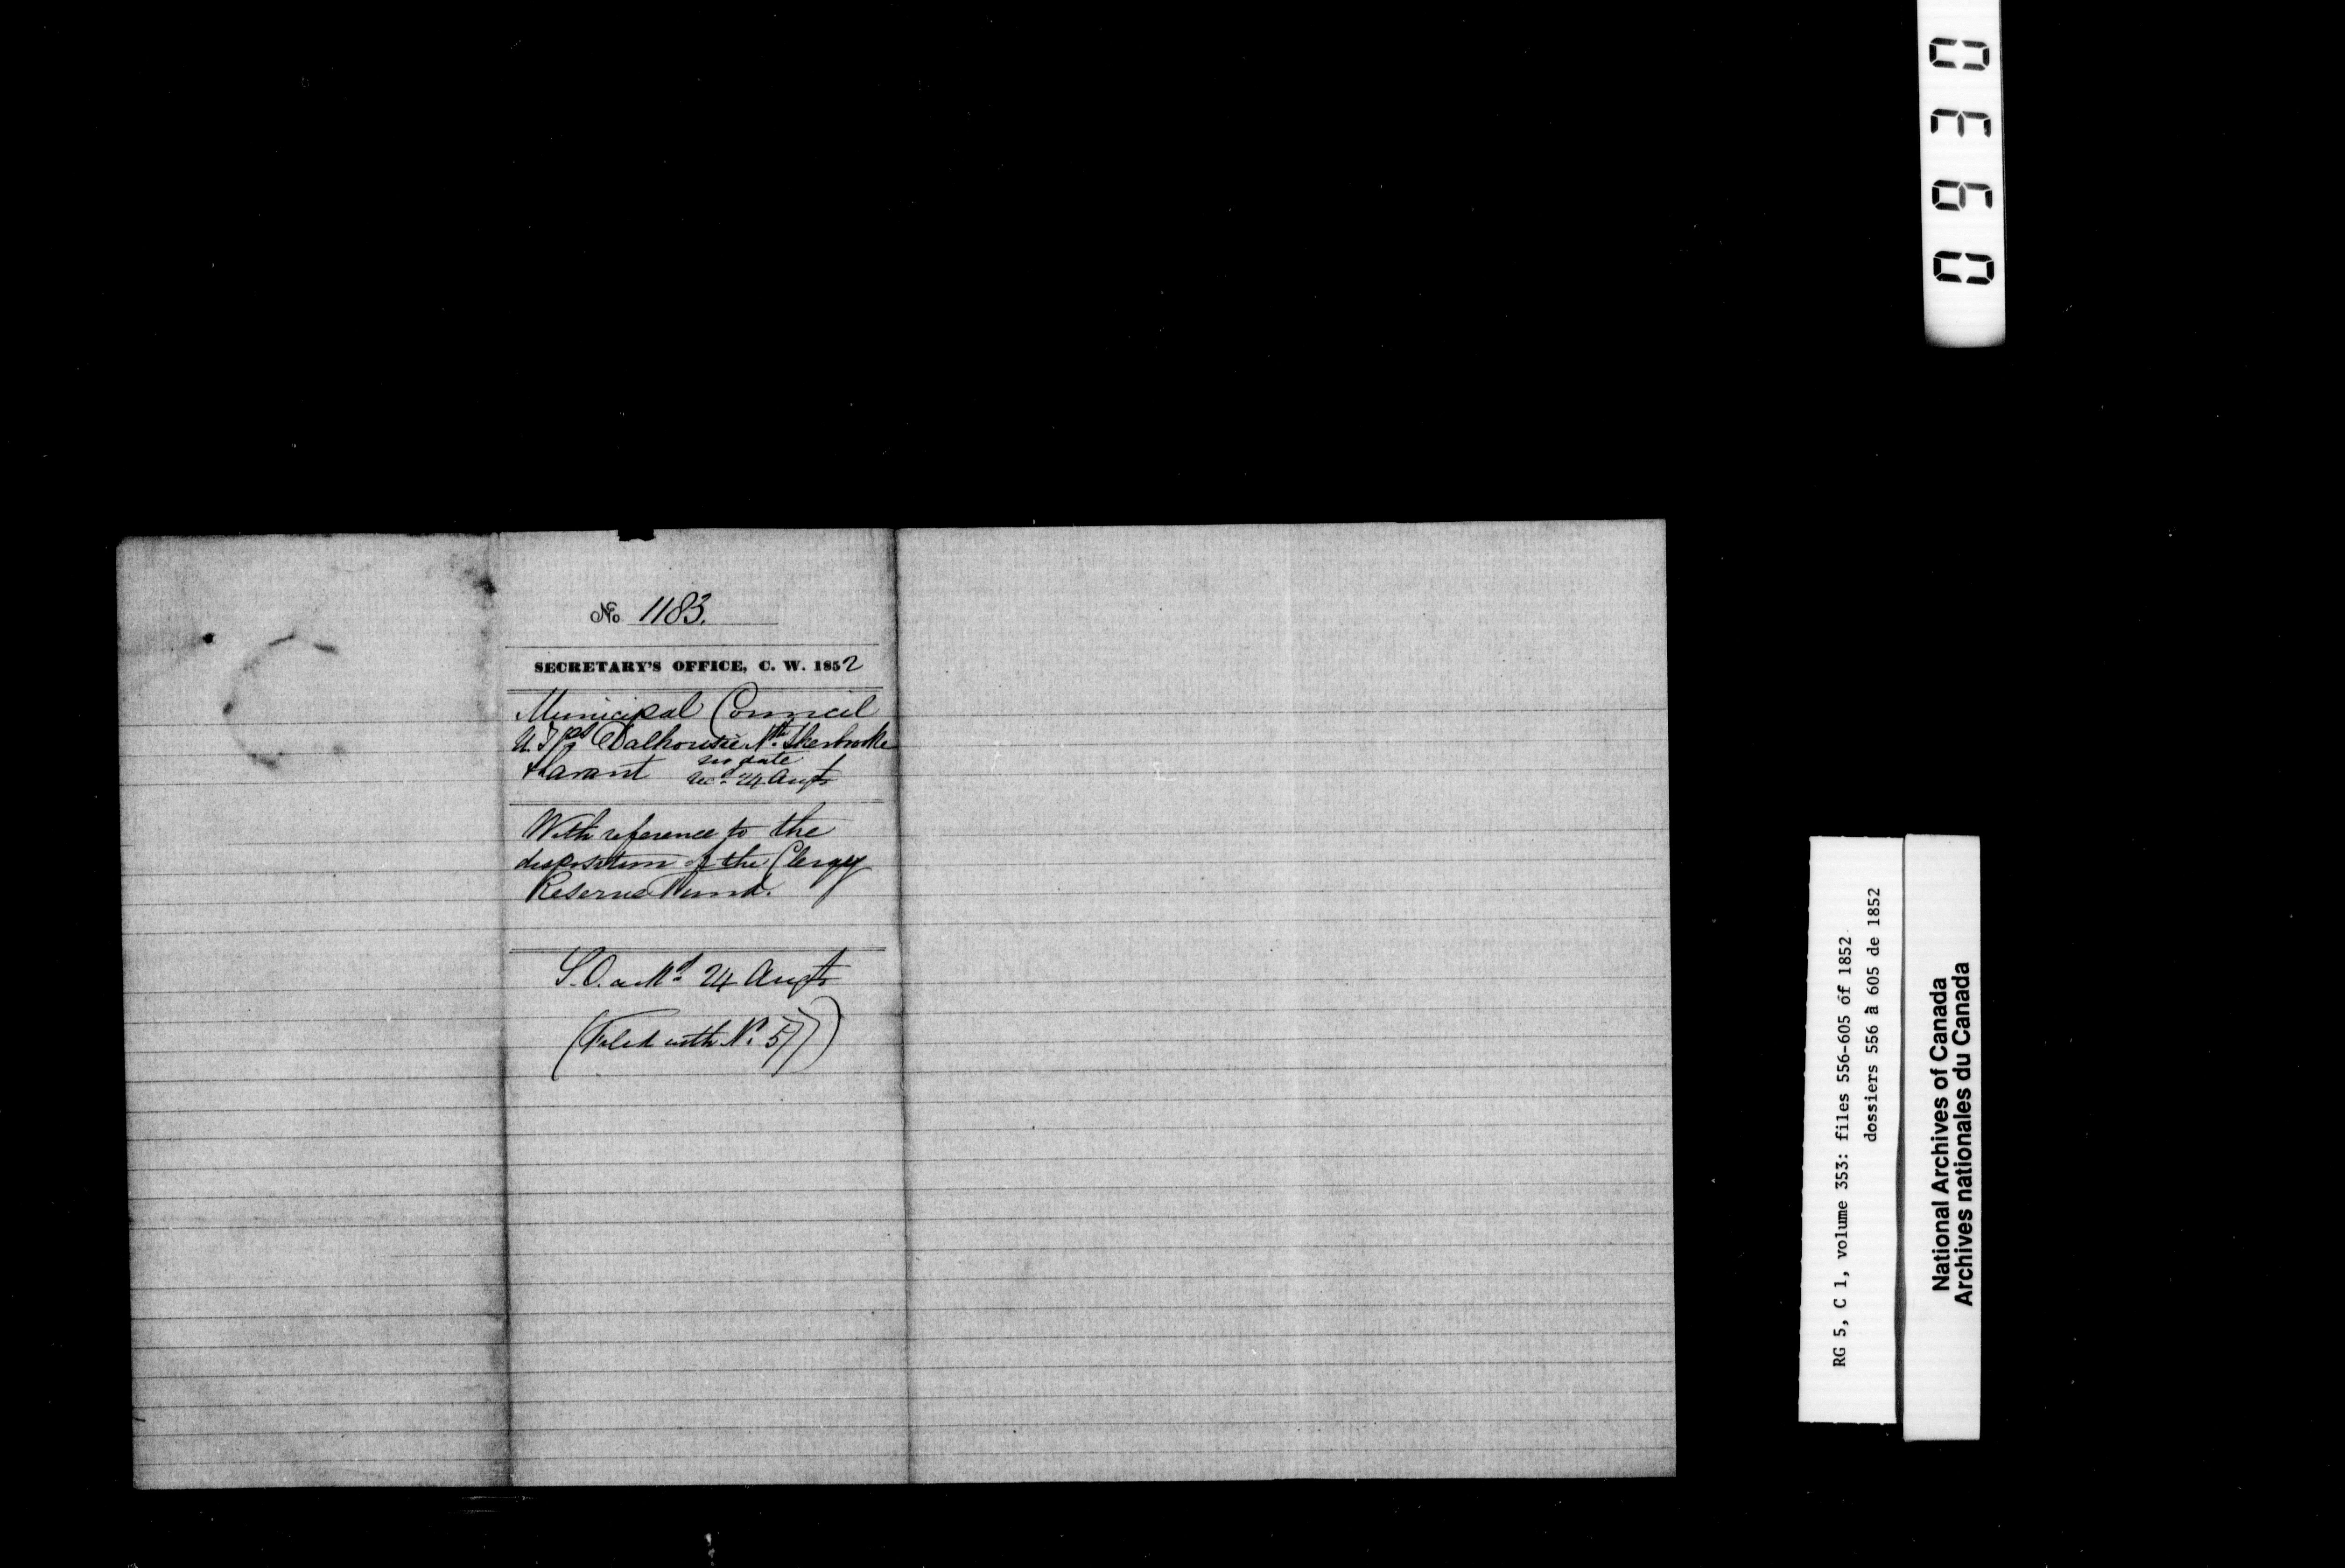 No 1183.
SECRETARY'S OFFICE, C. W. 1852
Municipal Council
U. T/ps Dalhousie Nth Sherbrooke
& Lavant no date
recd 24 Augt
With reference to the
disposition of the Clergy
Reserve Fund.
S.O. ackd 24 Augt
(Filed with No. 577)
0930
RG 5, C 1, volume 353: files 556-605 of 1852
dossiers 556 à 605 de 1852
National Archives of Canada
Archives nationales du Canada